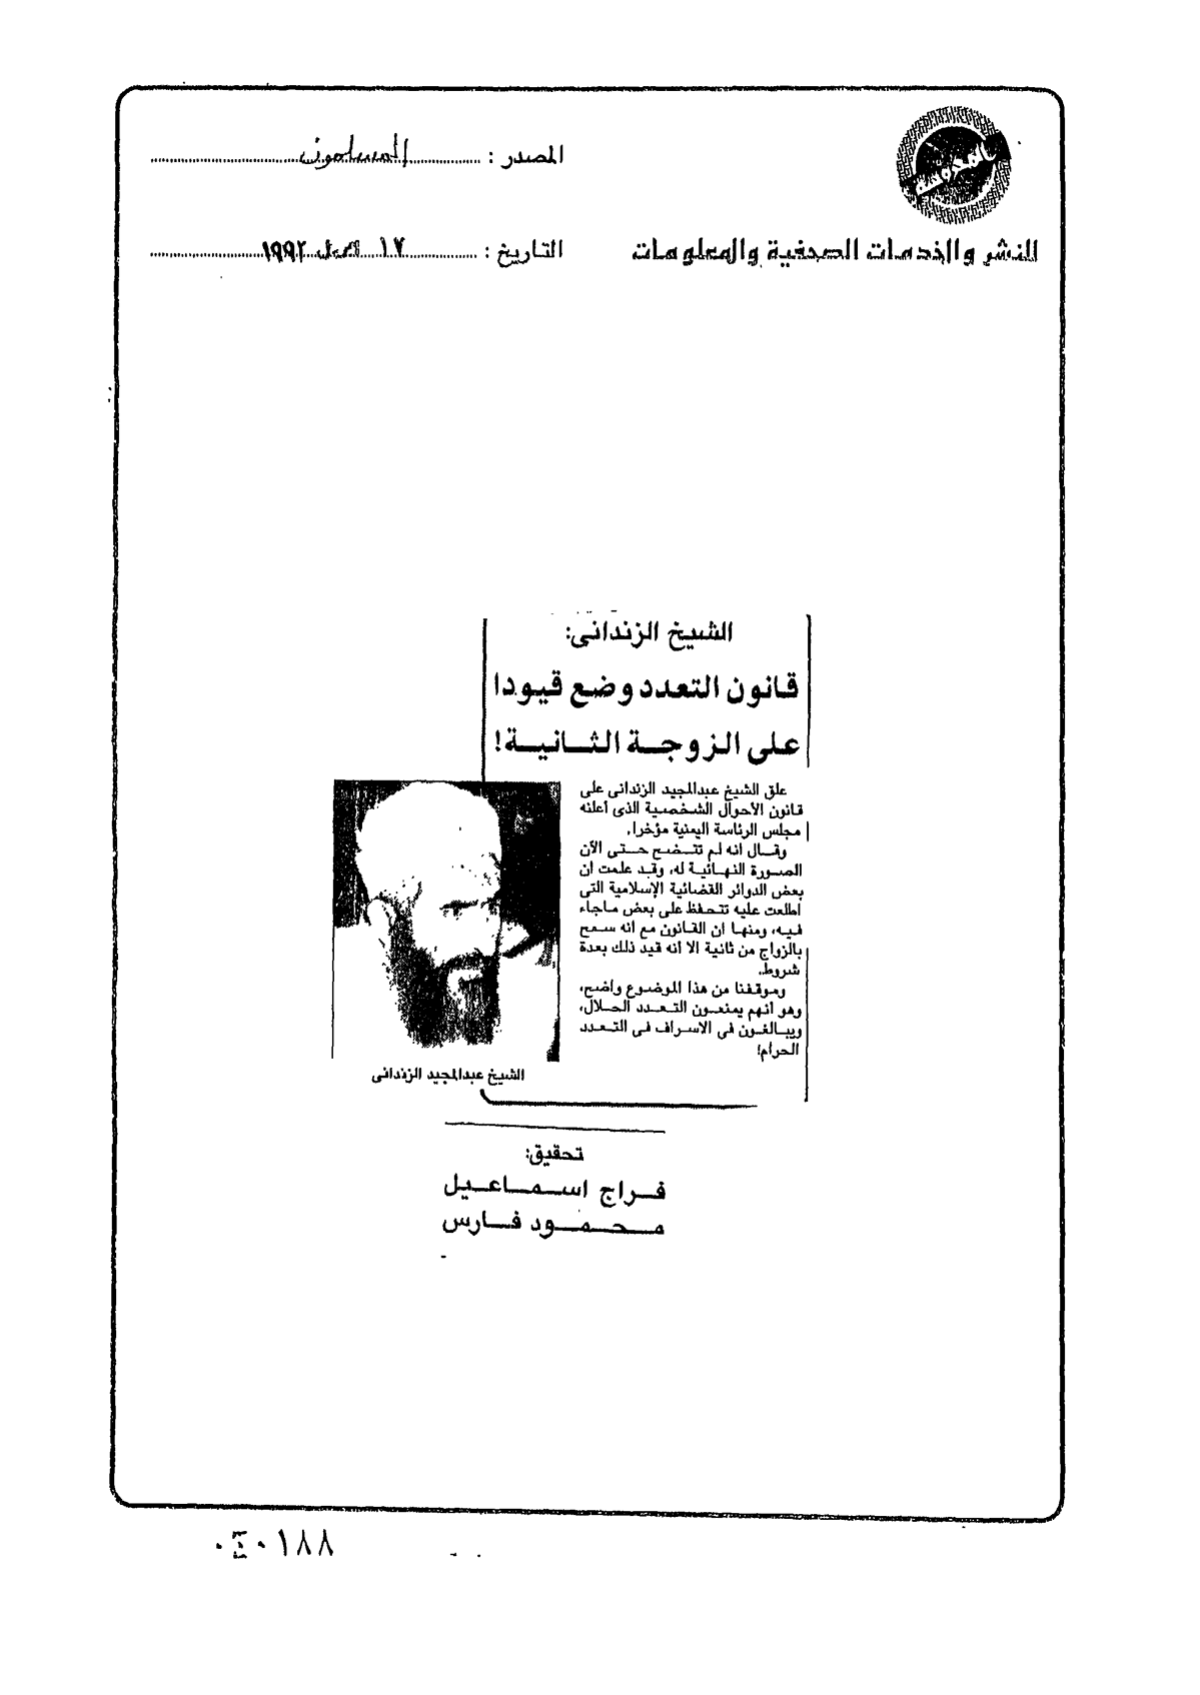 المصدر : المسلمون
للنشر والخدمات الصحفية والمعلومات
التاريخ : ١٧ ابريل ١٩٩٢
الشيخ الزندانى:
قانون التعدد وضع قيودا
على الزوجة الثانية!
علق الشيخ عبدالمجيد الزندانى على
قانون الأحوال الشخصية الذى أعلنه
مجلس الرئاسة اليمنية مؤخرا.
وقال انه لم تتضح حتى الآن
الصورة النهائية له، وقد علمت ان
بعض الدوائر القضائية الإسلامية التى
اطلعت عليه تتحفظ على بعض ماجاء
فيه، ومنها ان القانون مع انه سمح
بالزواج من ثانية الا انه قيد ذلك بعدة
شروط.
وموقفنا من هذا الموضوع واضح،
وهو أنهم يمنعون التعدد الحلال،
ويبالغون فى الاسراف فى التعدد
الحرام!
الشيخ عبدالمجيد الزندانى
تحقيق:
فراج اسماعيل
محمود فارس